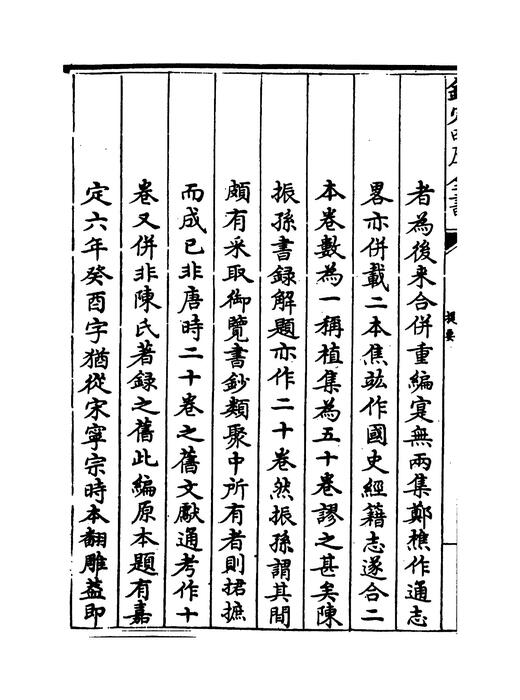 欽定四庫全書
提要
者為後来合併重編寔無兩集鄭樵作通志
畧亦併載二本焦竑作國史經籍志遂合二
本卷數為一稱植集為五十卷謬之甚矣陳
振孫書録解題亦作二十卷然振孫謂其間
頗有采取御覽書鈔類聚中所有者則捃摭
而成已非唐時二十卷之舊文獻通考作十
卷又併非陳氏著録之舊此編原本題有嘉
定六年癸酉字猶從宋寧宗時本翻雕葢即